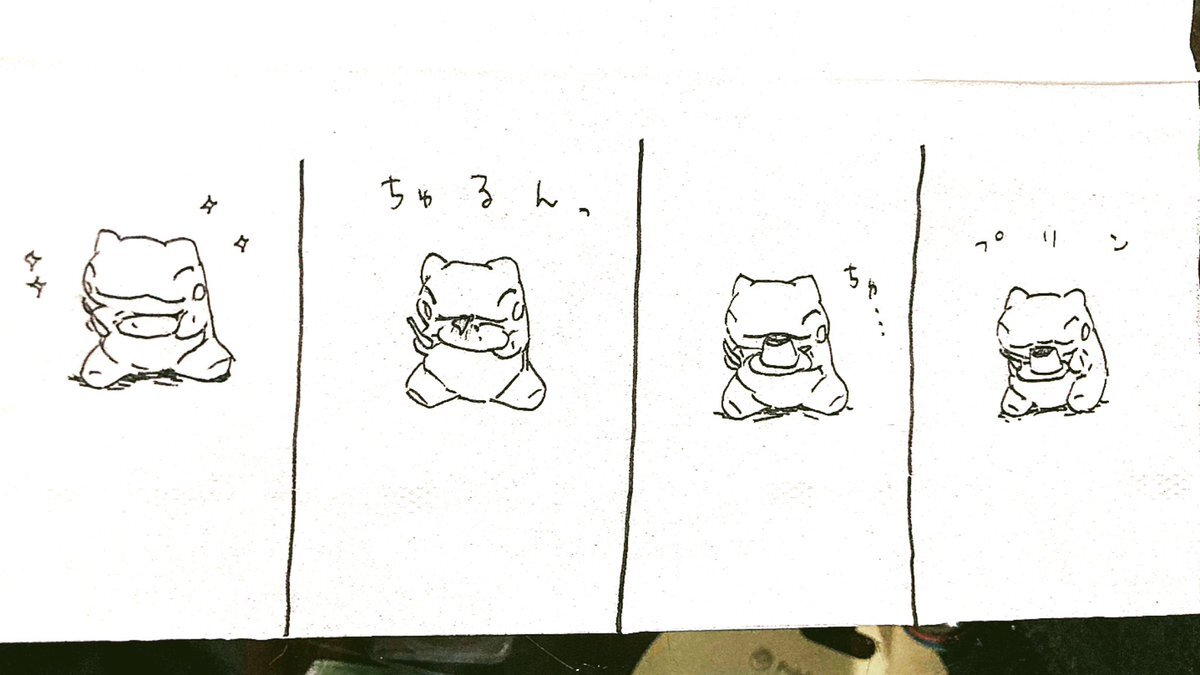 プリン
ちゅ....
ちゅるんっ